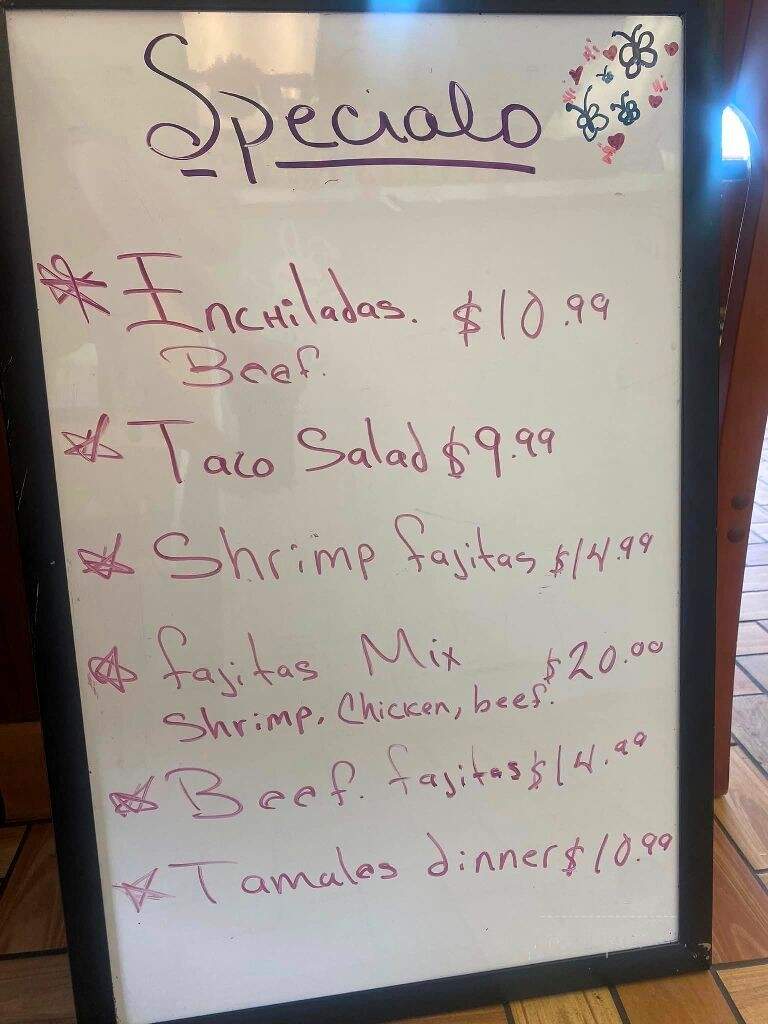 Specials
Hi
Hi
Hi
Inchiladas. $10.99
Beef.
Taco Salad $9.99
Shrimp fajitas $14.99
fajitas Mix $20.00
Shrimp. Chicken, beef.
Beef. fajitas $14.99
Tamales dinner $10.99